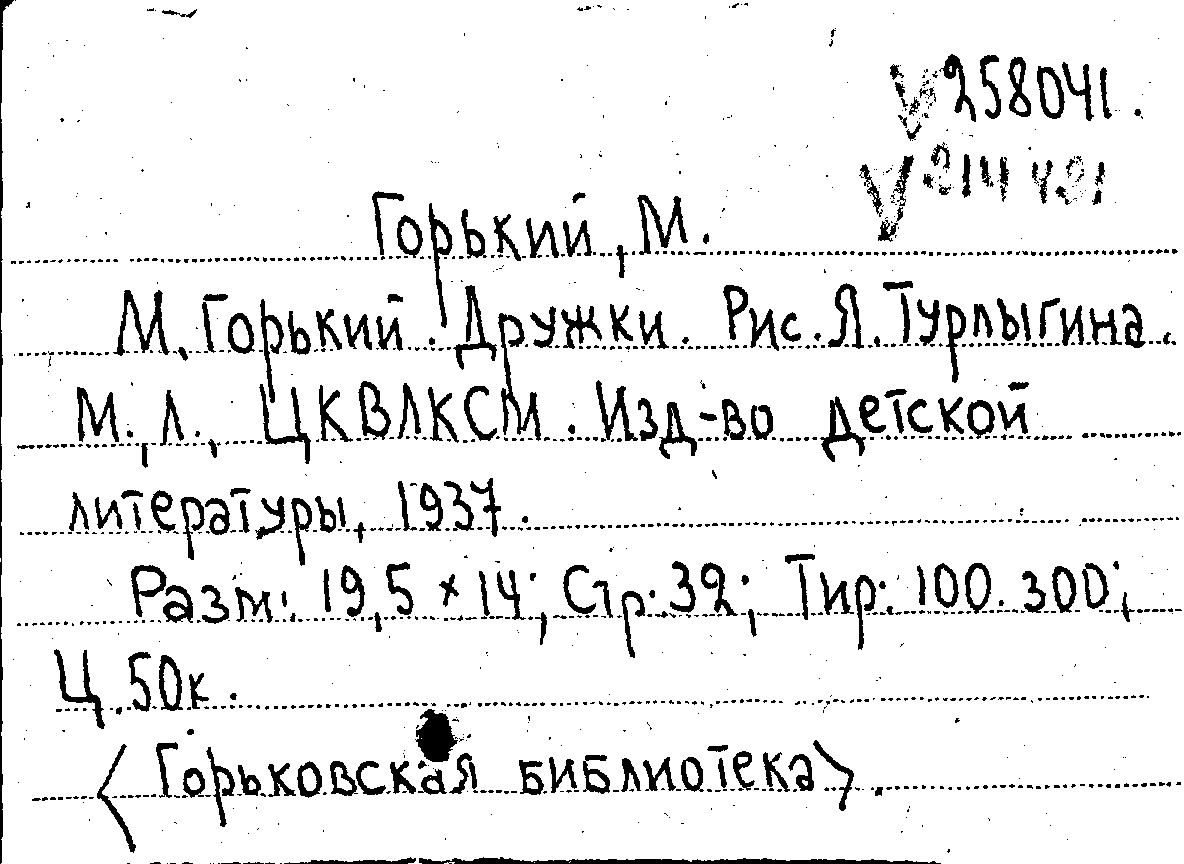 V 258041.
V 314 431
Горький, М.
М. Горький. Дружки. Рис. Я. Турлыгина.
М., Л., ЦКВЛКСМ. Изд-во детской
литературы, 1937.
Разм: 19,5 × 14; Стр: 32; Тир: 100.300;
Ц. 50к.
<Горьковская библиотека>.